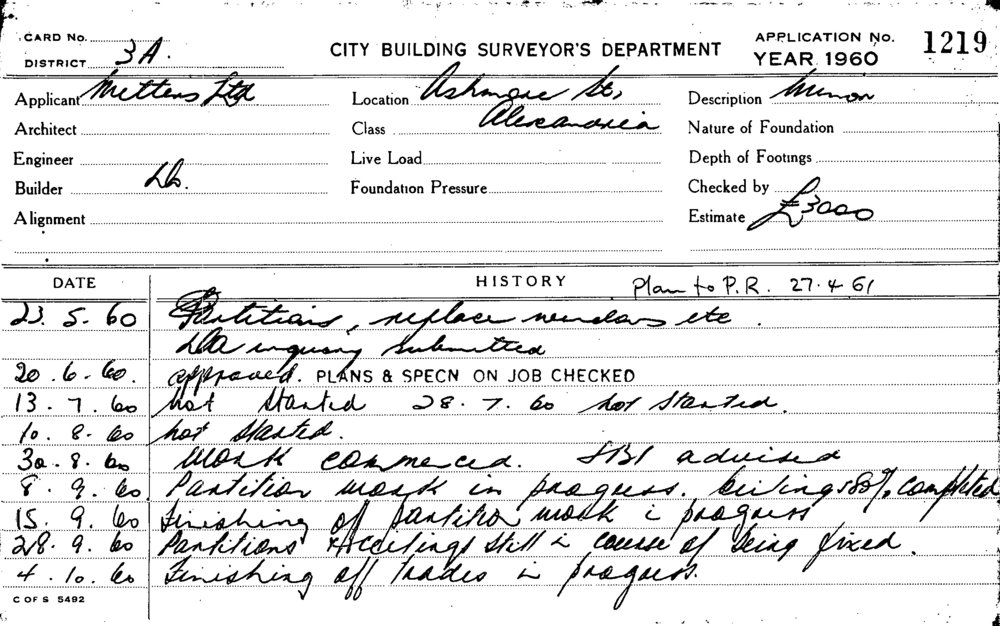 CARD No.
DISTRICT 3A.
CITY BUILDING SURVEYOR'S DEPARTMENT
APPLICATION No. 1219
YEAR 1960
Applicant Mettens Ltd Location Ashmore St, Description Minor
Architect Class Alexandria Nature of Foundation
Engineer Live Load Depth of Footings
Builder Do. Foundation Pressure Checked by
Alignment Estimate £3000
DATE HISTORY Plan to P.R. 27.4 61
23. 5. 60 Partitions, replace windows etc.
inquiry submitted
20. 6. 60. approved. PLANS & SPECN ON JOB CHECKED
13. 7. 60 Not Started 28. 7. 60 Not Started.
10. 8. 60 Not Started.
30. 8. 60 Work commenced. SBI advised
8. 9. 60 Partition work in progress. Ceilings 80% completed
15. 9. 60 Finishing of partition work i progress
28. 9. 60 Partitions & Ceilings still i course of being fixed.
4. 10. 60 Finishing off trades in progress.
C OF S 5492